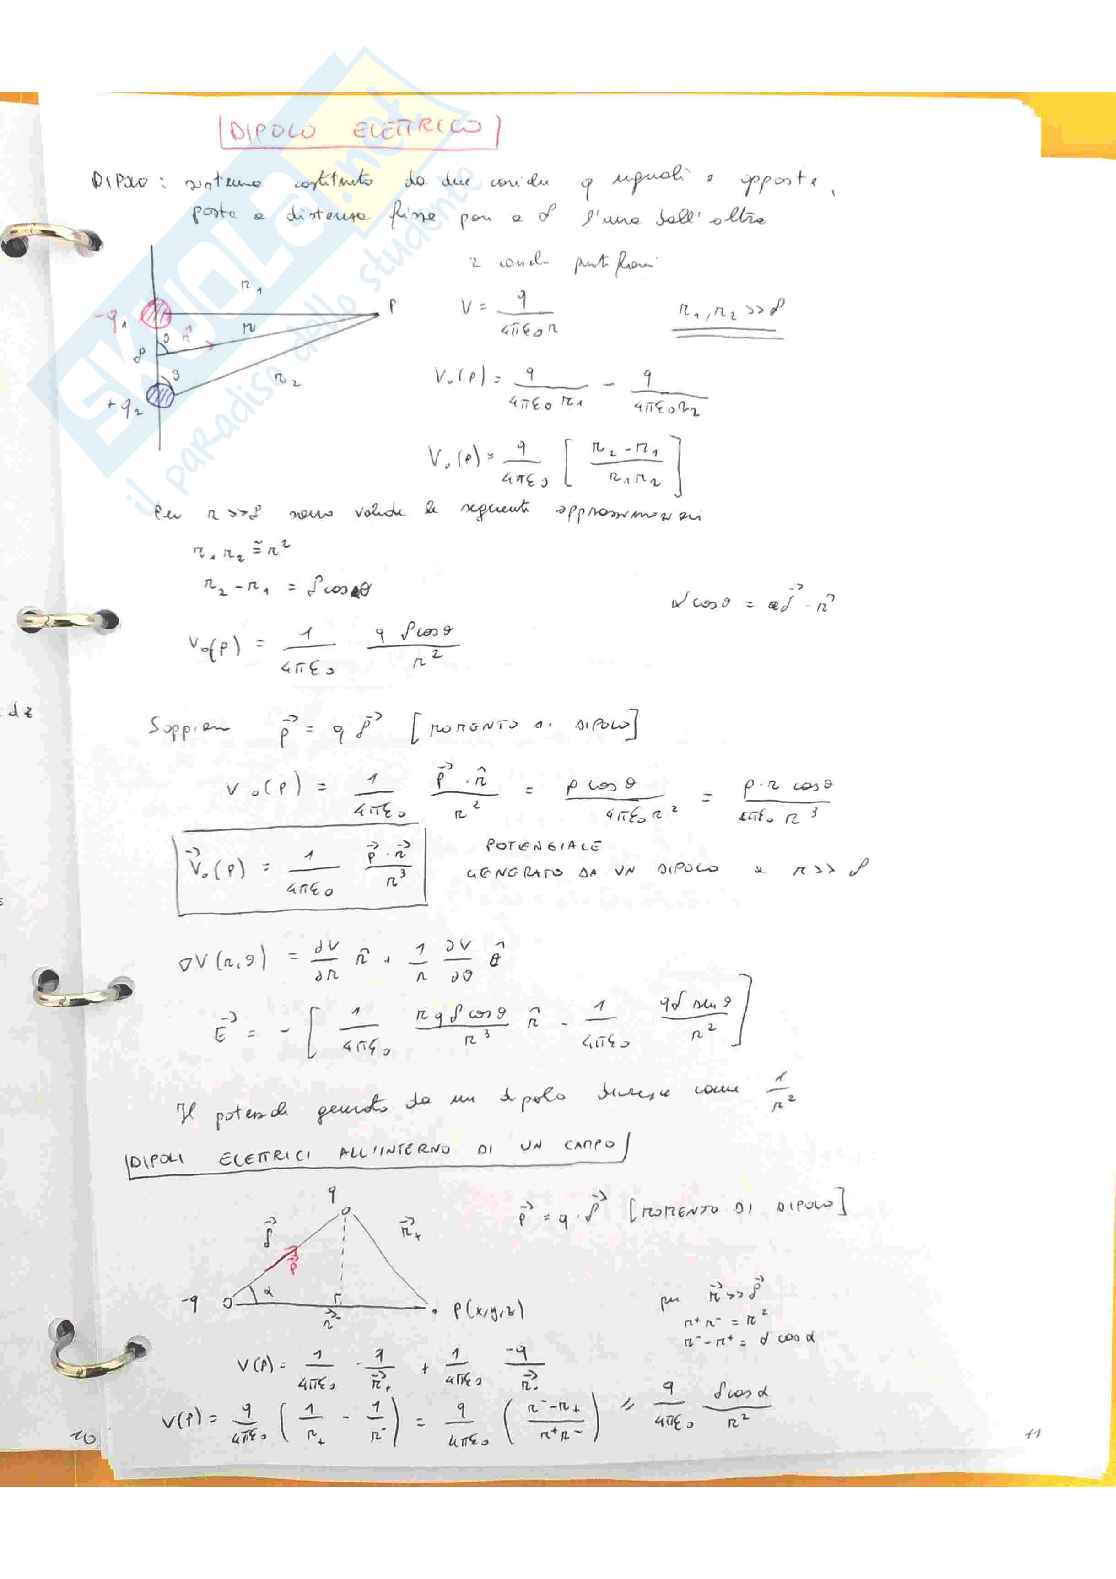 DIPOLO ELETTRICO
DIPOLO: sistema costituito da due cariche q uguali e opposte,
poste a distanza fissa pari a δ l'una dall'altra
2 cariche puntiformi
r₁
-q₁ P
r̂ r
δ θ
θ r₂
+q₂
V = q/(4πε₀r) r₁,r₂ >> δ
V₀(P) = q/(4πε₀r₁) - q/(4πε₀r₂)
V₀(P) = q/(4πε₀) [(r₂-r₁)/(r₁r₂)]
Per r >> δ sono valide le seguenti approssimazioni
r₁r₂ ≅ r²
r₂-r₁ = δcosθ
δcosθ = δ⃗ · r̂
V₀(P) = 1/(4πε₀) qδcosθ/r²
Sappiamo p⃗ = qδ⃗ [MOMENTO DI DIPOLO]
V₀(P) = 1/(4πε₀) p⃗·r̂/r² = p cosθ/(4πε₀r²) = p·r cosθ/(4πε₀r³)
V⃗₀(P) = 1/(4πε₀) p⃗·r⃗/r³ POTENZIALE
GENERATO DA UN DIPOLO a r >> δ
∇V(r,θ) = ∂V/∂r r̂ + 1/r ∂V/∂θ θ̂
E⃗ = - [1/(4πε₀) 2qδcosθ/r³ r̂ - 1/(4πε₀) qδ sinθ/r²]
Il potenziale generato da un dipolo decresce come 1/r²
DIPOLI ELETTRICI ALL'INTERNO DI UN CAMPO
q
p⃗ = q·δ⃗ [MOMENTO DI DIPOLO]
δ⃗ r⃗₊
p⃗
-q α P(x,y,z)
r⃗⁻
per r⃗ >> δ⃗
r⁺r⁻ = r²
r⁻-r⁺ = δ cosα
V(P) = 1/(4πε₀) · q/r⃗₊ + 1/(4πε₀) -q/r⃗₋
V(P) = q/(4πε₀) (1/r₊ - 1/r⁻) = q/(4πε₀) ((r⁻-r₊)/(r⁺r⁻)) = q/(4πε₀) δcosα/r²
10 11
dz
SKUOLA.net
il paradiso dello studente